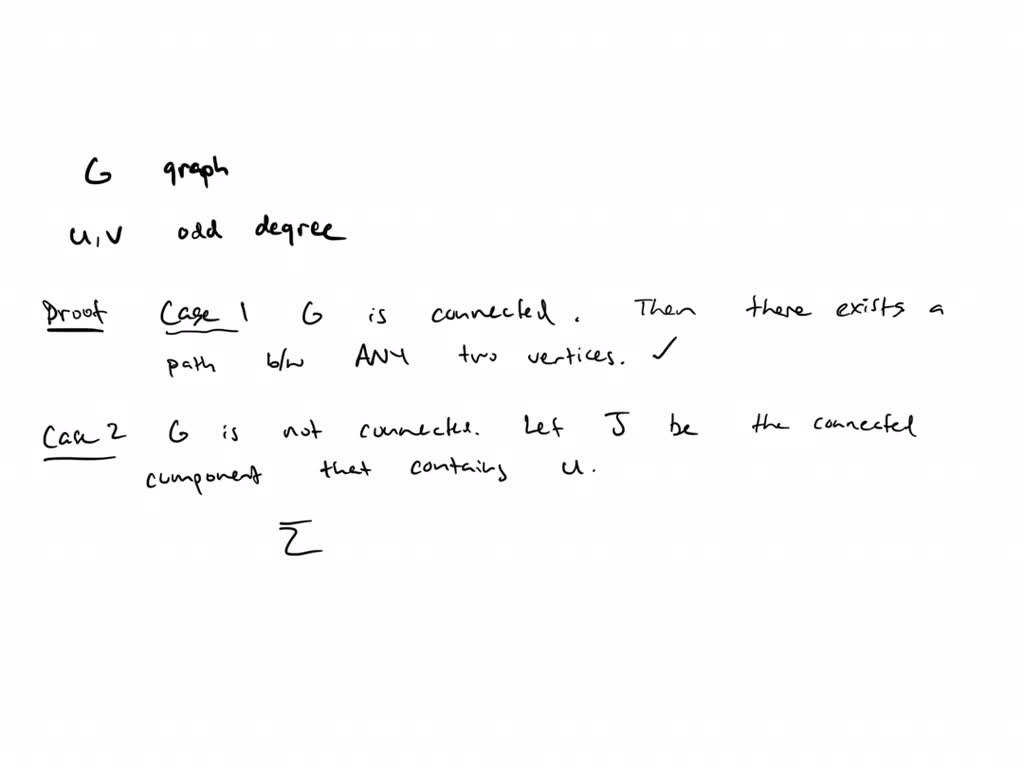 G graph
u,v odd degree
Proof Case 1 G is connected. Then there exists a
path b/w ANY two vertices. ✓
Case 2 G is not connected. Let J be the connected
component that contains u.
Σ